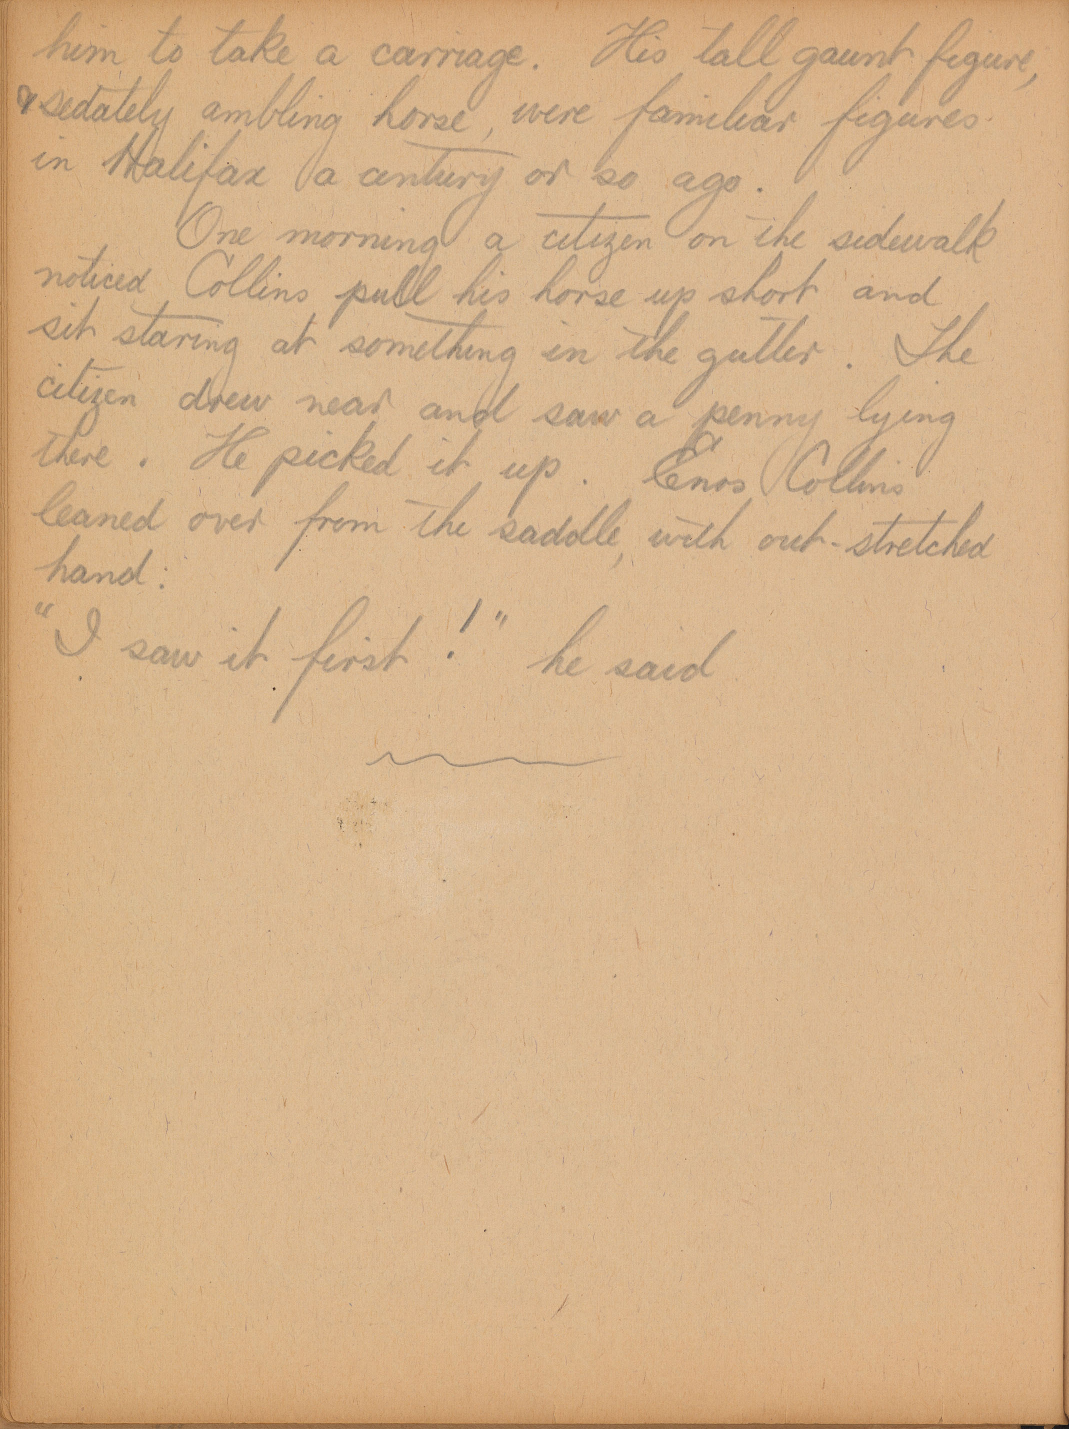 him to take a carriage. His tall gaunt figure,
& sedately ambling horse, were familiar figures
in Halifax a century or so ago.
One morning a citizen on the sidewalk
noticed Collins pull his horse up short and
sit staring at something in the gutter. The
citizen drew near and saw a penny lying
there. He picked it up. Enos Collins
leaned over from the saddle, with out-stretched
hand:
"I saw it first!" he said